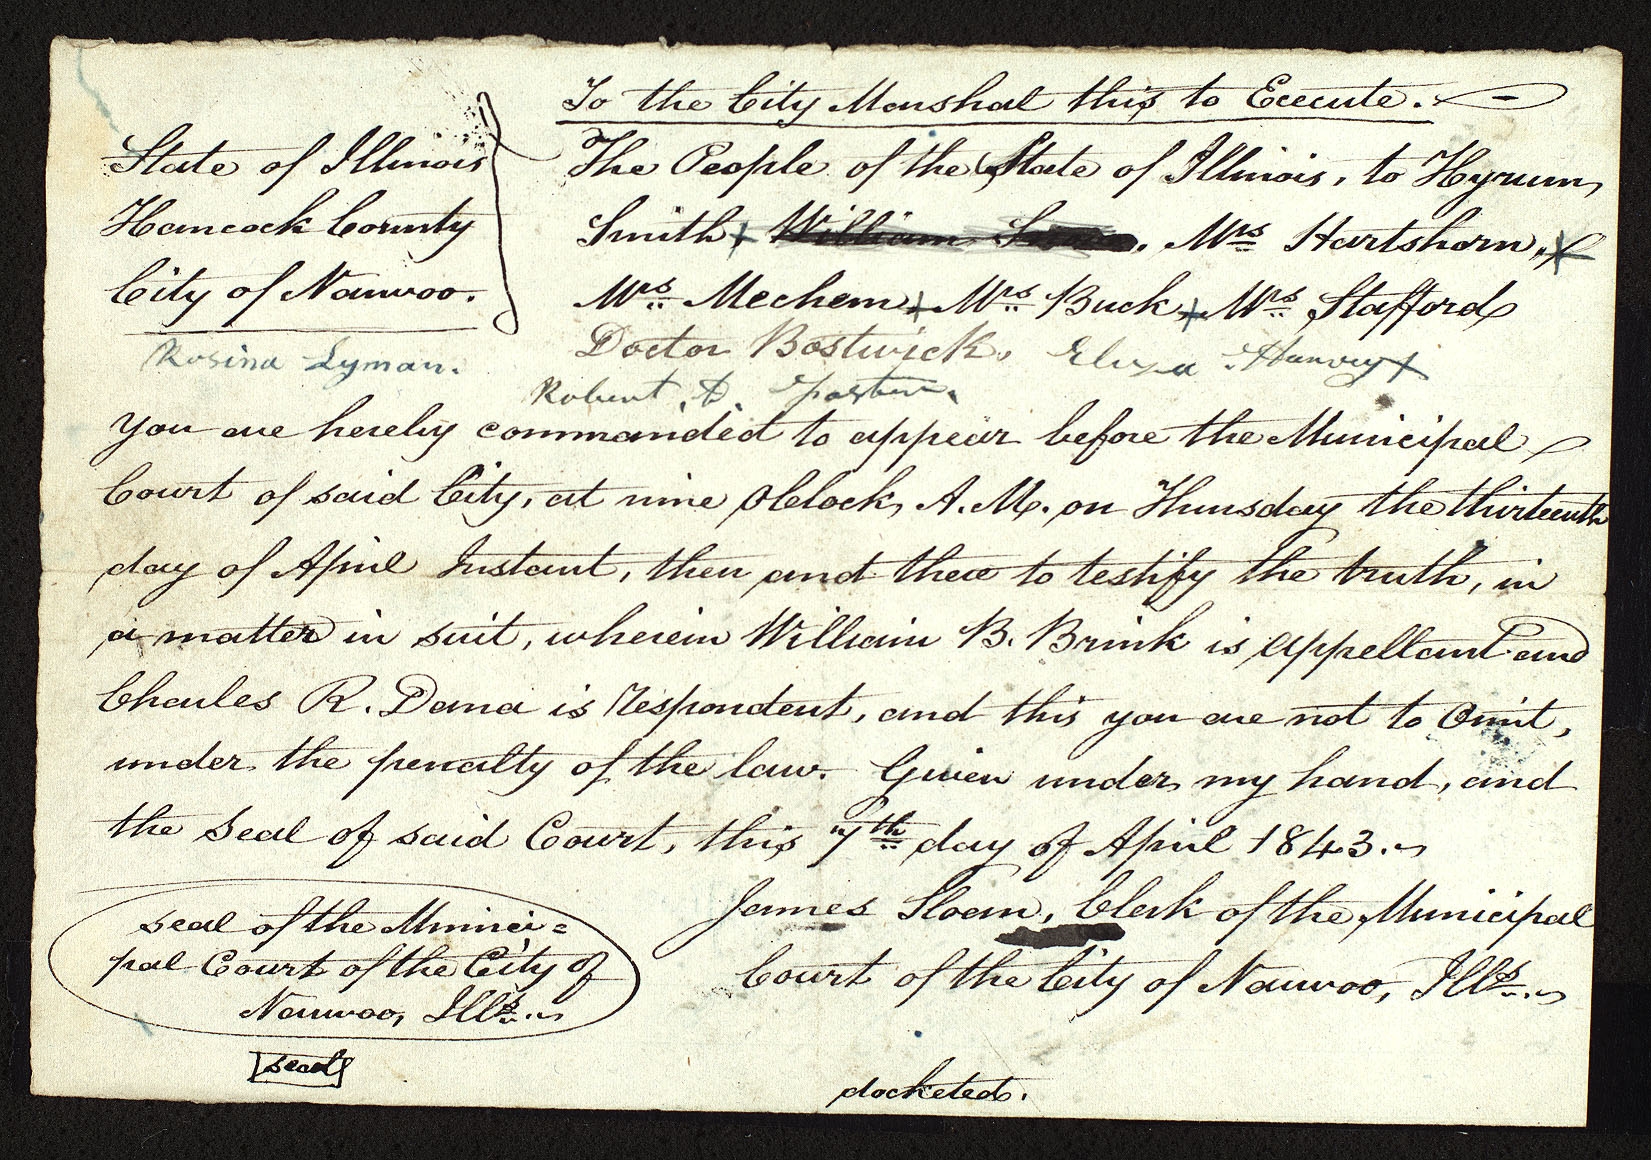 To the City Marshal this to Execute.
State of Illinois
Hancock County
City of Nauvoo.
The People of the State of Illinois, to Hyrum
Smith, William, Mrs Hartshorn,
Mrs Mechem, Mrs Buck, Mrs Stafford
Doctor Bostwick. Eliza Harvey
Rosina Lyman.
Robert D.
You are hereby commanded to appear before the Municipal
Court of said City, at nine OClock, A.M. on Thursday the thirteenth
day of April Instant, then and there to testify the truth, in
a matter in suit, wherein William B. Brink is appellant and
Charles R. Dana is respondent, and this you are not to Omit,
under the penalty of the law. Given under my hand, and
the Seal of said Court, this 7th day of April 1843.
James Sloan, Clerk of the Municipal
Court of the City of Nauvoo, Ills.
seal of the Munici=
pal Court of the City of
Nauvoo, Ills.
seal
docketed.